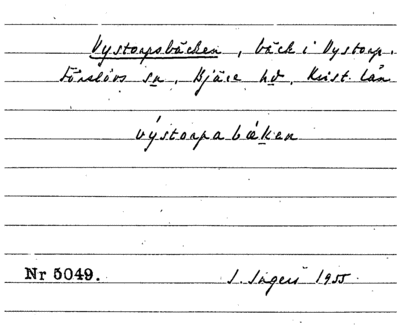 Vystorpsbäcken, bäck i Vystorp.
Förslövs sn, Bjäre hd, Krist. län
výstorpabǽken
Nr 5049.
S. Ingers 1955.